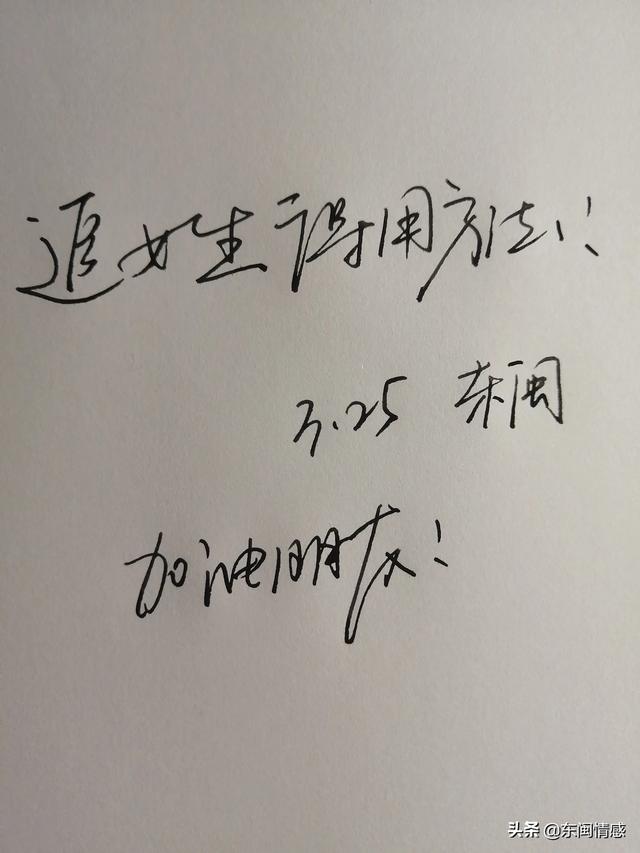 追女生得用方法!!
3.25 东闽
加油朋友!
头条 @东闽情感